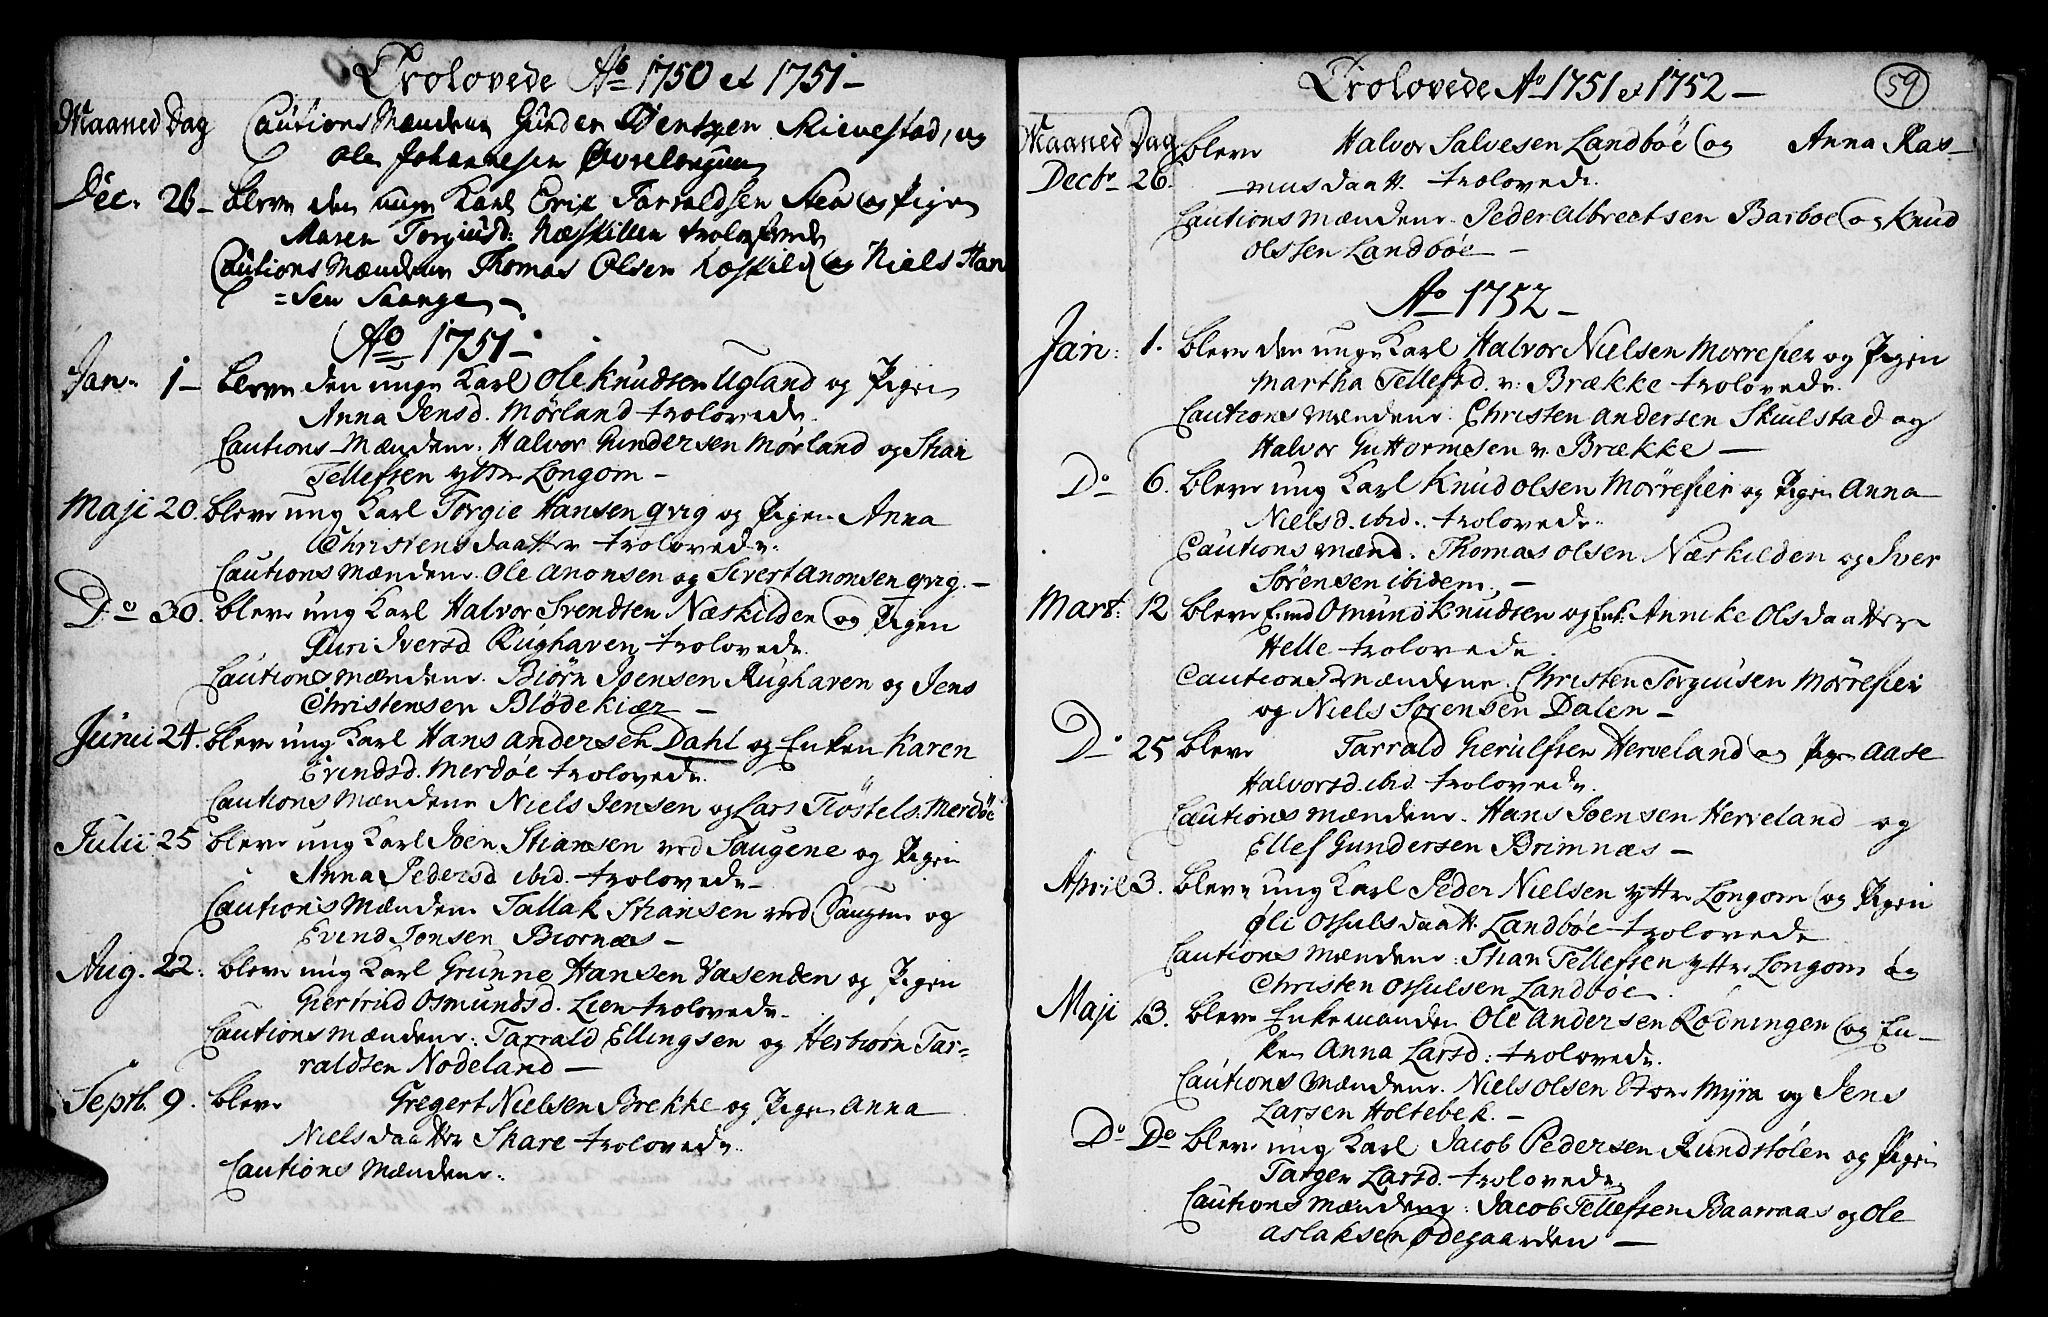 Trolovede Ao 1750 et 1751 –
Maaned Dag Cautions Mændene Gunder Bentzen Skievestad, og
Ole Johannesen Øvrelongum
Dec. 26 – bleve den unge Karl Erix Tarraldsen Steu og Pigen
Maren Torgiusd: Næskillen trolovede
Cautions Mændene Thomas Olsen Næskild og Niels Han
=sen Saange –
Ao 1751 –
Jan. 1 – bleve den unge Karl Ole Knudsen Ugland og Pigen
Anna Jensd. Mørland trolovede.
Cautions-Mændene: Halvor Gundersen Mørland og Stian
Tellefsen yttre Longom –
Maji 20. bleve ung Karl Torgie Hansen qvig og Pigen Anna
Christensdaatter trolovede.
Cautions Mændene: Ole Anonsen og Sivert Anonsen qvig. –
Do 30. bleve ung Karl Halvor Svendsen Næskilden og Pigen
Guri Iversd Rughaven trolovede.
Cautions mændene. Biørn Joensen Rughaven og Jens
Christensen Blødekiær –
Junii 24. bleve ung Karl Hans Andersen Dahl og Enken Karen
Evindsd. Merdøe trolovede.
Cautions Mændene Niels Jensen og Lars Tiøstels. Merdøe
Julii 25 bleve ung Karl Joen Stiansen ved Saugene og Pigen
Anna Pedersd ibid. trolovede –
Cautions Mændene Tallak Stiansen ved Saugene og
Evind Jonsen Biornæs –
Aug. 22. bleve ung Karl Grunne Hansen Vasenden og Pigen
Giertrud Osmundsd. Lien trolovede.
Cautions mændene: Tarrald Ellingsen og Herbiørn Tar=
raldsen Nodeland –
Septb. 9. bleve Gregert Nielsen Brekke og Pigen Anna
Nielsdaatter Skare trolovede.
Cautions Mændene:
Trolovede Ao 1751 et 1752 –
59
Maaned Dag bleve Halvor Salvesen Landbøe og Anna Ras–
Decbr 26. –musdaatt. trolovede.
Cautions mændene. Peder Albrectsen Barboe og Knud
Olssen Landbøe –
Ao 1752 –
Jan: 1. bleve den unge Karl Halvor Nielsen Morrefier og Pigen
Martha Tellefsd. v: Brække trolovede.
Cautions mændene: Christen Andersen Skulstad og
Halvor Guttormsen v. Brække –
Do 6. bleve ung Karl Knud Olsen Mørrefier og Pigen Anna
Nielsd. ibid. trolovede.
Cautions mænd. Thomas Olsen Næskilden og Iver
Sørensen ibidem. –
Mart: 12 bleve Eemd Osmund Knudsen og Enk: Anneke Olsdaatter
Helle trolovede.
Cautions mændene. Christen Torgiusen Mørrefier
og Niels Sørensen Dalen –
Do 25 bleve Tarrald Gerulfsen Herveland og Pigen Aase
Halvorsd. ibid. trolovede.
Cautions mændene. Hans Joensen Herveland og
Ellef Gundersen Brimnæs –
April 3. bleve ung Karl Peder Nielsen yttre Longom og Pigen
Øli Osulsdaatt. Landbøe trolovede
Cautions mændene: Stian Tellefsen yttre Longom og
Christen Osulsen Landbøe.
Maji 13. bleve Enkemanden Ole Andersen Rødningen og En–
ken Anna Larsd: trolovede.
Cautions mændene. Niels Olsen Store Myra og Jens
Larsen Holtebek. –
Do Do bleve ung Karl Jacob Pedersen Rundstolen og Pigen
Targer Larsd. trolovede.
Cautions mændene: Jacob Tellefsen Baarnaas og Ole
Aslaksen Ødegaarden –